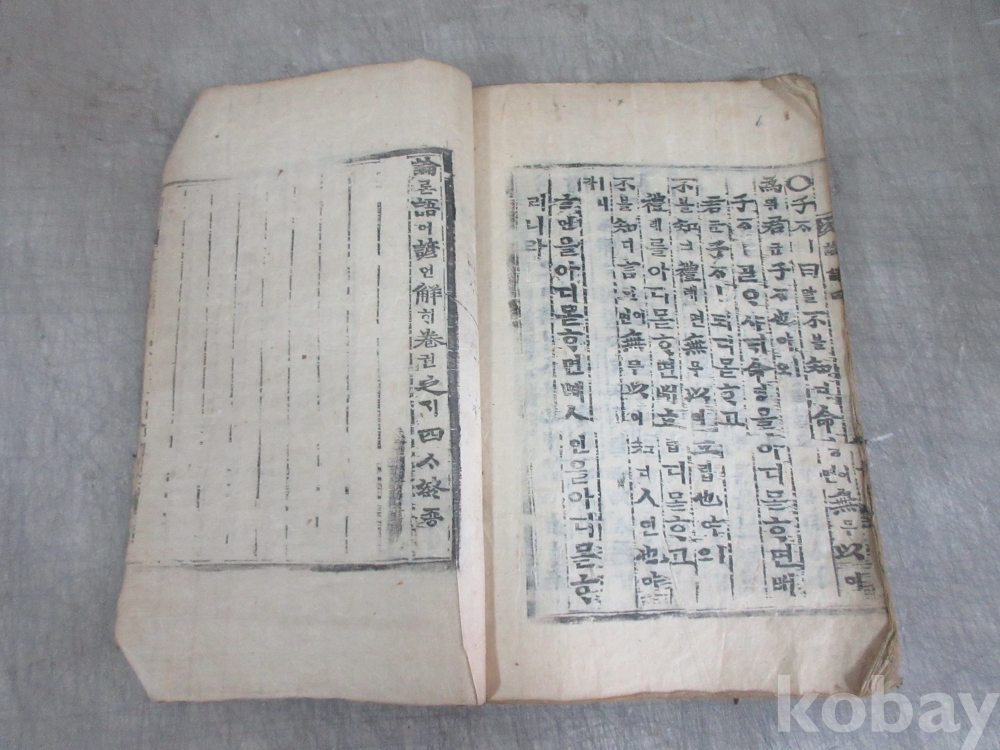 ○子ᄌᆞㅣ曰왈不블知디命명이면無무以이
爲위君군子ᄌᆞ也야ㅣ오
子ᄌᆞㅣᄀᆞᆯᄋᆞ샤ᄃᆡ命명을아디몯ᄒᆞ면ᄡᅥ
君군子ᄌᆞㅣ되디몯ᄒᆞ고
不블知디禮례면無무以이立립也야ㅣ오
禮례를아디몯ᄒᆞ면ᄡᅥ立립디몯ᄒᆞ고
不블知디言언이면無무以이知디人인也야
ㅣ니라
言언을아디몯ᄒᆞ면ᄡᅥ人인을아디몯ᄒᆞ
리니라
論론語어諺언解ᄒᆡ卷권之지四ᄉᆞ終죵
kobay